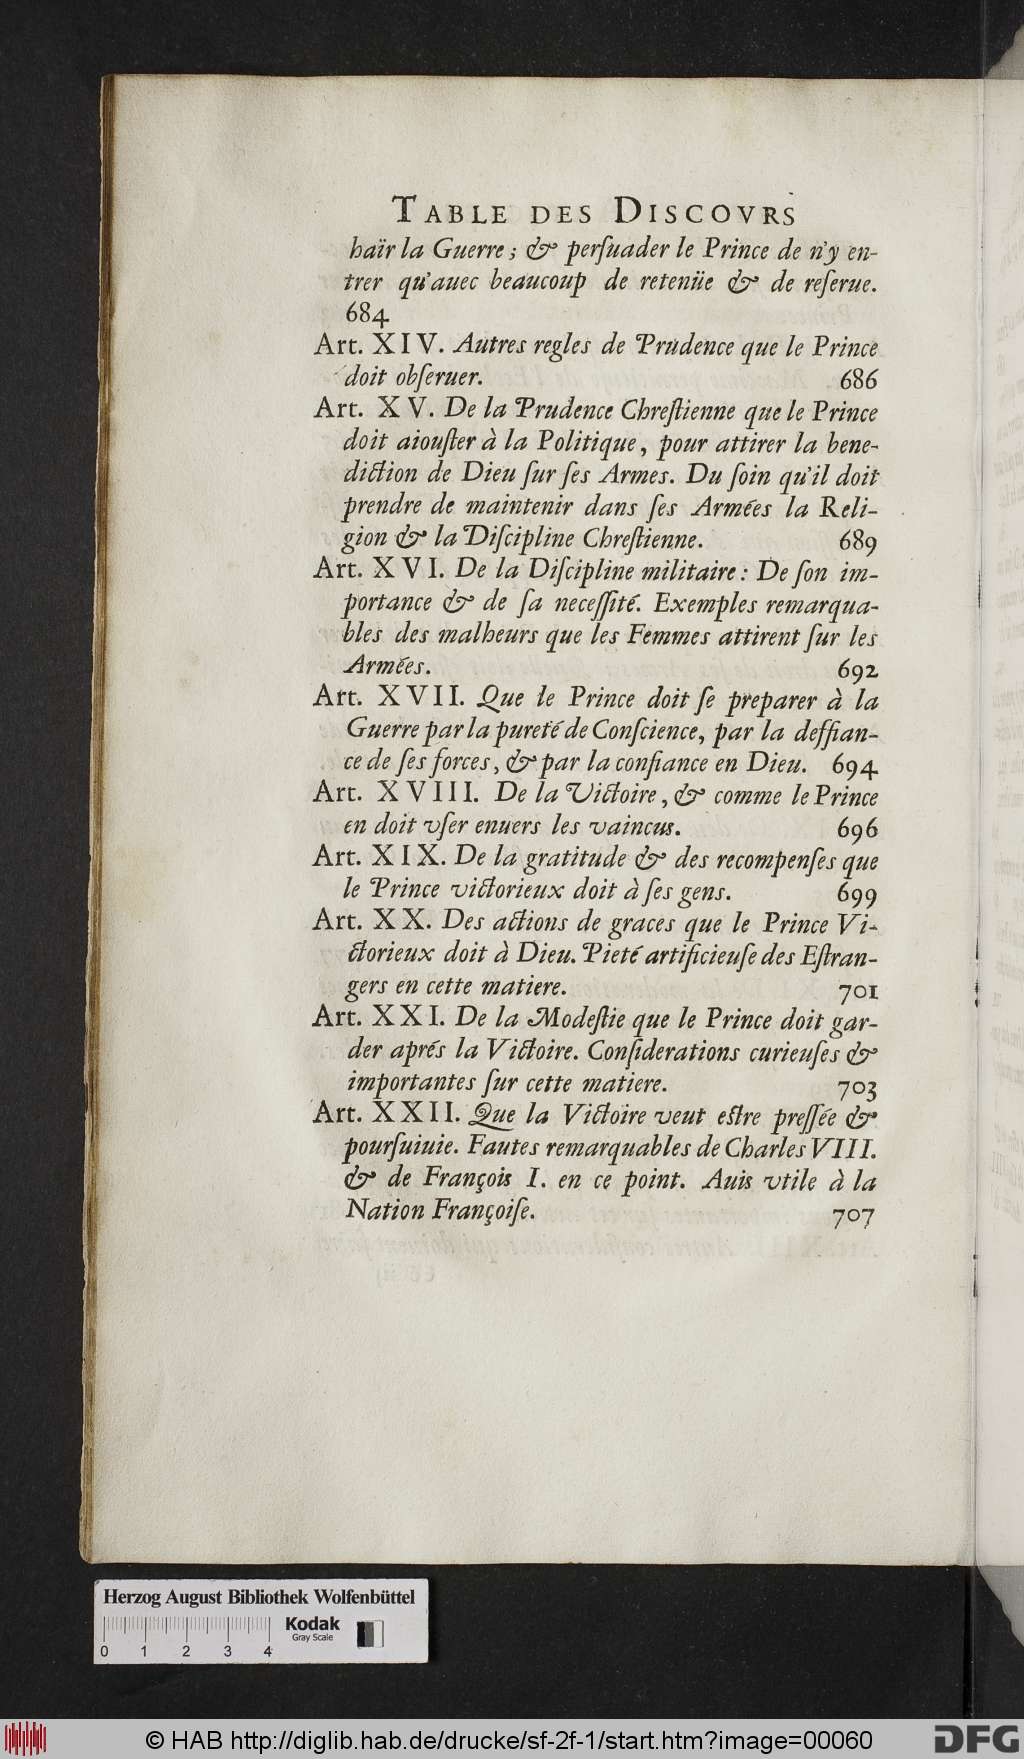 TABLE DES DISCOVRS
haïr la Guerre; & perſuader le Prince de n'y en-
trer qu'auec beaucoup de retenüe & de reſerue.
684
Art. XIV. Autres regles de Prudence que le Prince
doit obſeruer. 686
Art. XV. De la Prudence Chreſtienne que le Prince
doit aiouſter à la Politique, pour attirer la bene-
diction de Dieu ſur ſes Armes. Du ſoin qu'il doit
prendre de maintenir dans ſes Armées la Reli-
gion & la Diſcipline Chreſtienne. 689
Art. XVI. De la Diſcipline militaire: De ſon im-
portance & de ſa neceſſité. Exemples remarqua-
bles des malheurs que les Femmes attirent ſur les
Armées. 692
Art. XVII. Que le Prince doit ſe preparer à la
Guerre par la pureté de Conſcience, par la deffian-
ce de ſes forces, & par la confiance en Dieu. 694
Art. XVIII. De la Victoire, & comme le Prince
en doit vſer enuers les vaincus. 696
Art. XIX. De la gratitude & des recompenſes que
le Prince victorieux doit à ſes gens. 699
Art. XX. Des actions de graces que le Prince Vi-
ctorieux doit à Dieu. Pieté artificieuſe des Eſtran-
gers en cette matiere. 701
Art. XXI. De la Modeſtie que le Prince doit gar-
der aprés la Victoire. Conſiderations curieuſes &
importantes ſur cette matiere. 703
Art. XXII. Que la Victoire veut eſtre preſſée &
pourſuiuie. Fautes remarquables de Charles VIII.
& de François I. en ce point. Auis vtile à la
Nation Françoiſe. 707
Herzog August Bibliothek Wolfenbüttel
Kodak
Gray Scale
0 1 2 3 4
© HAB http://diglib.hab.de/drucke/sf-2f-1/start.htm?image=00060
DFG